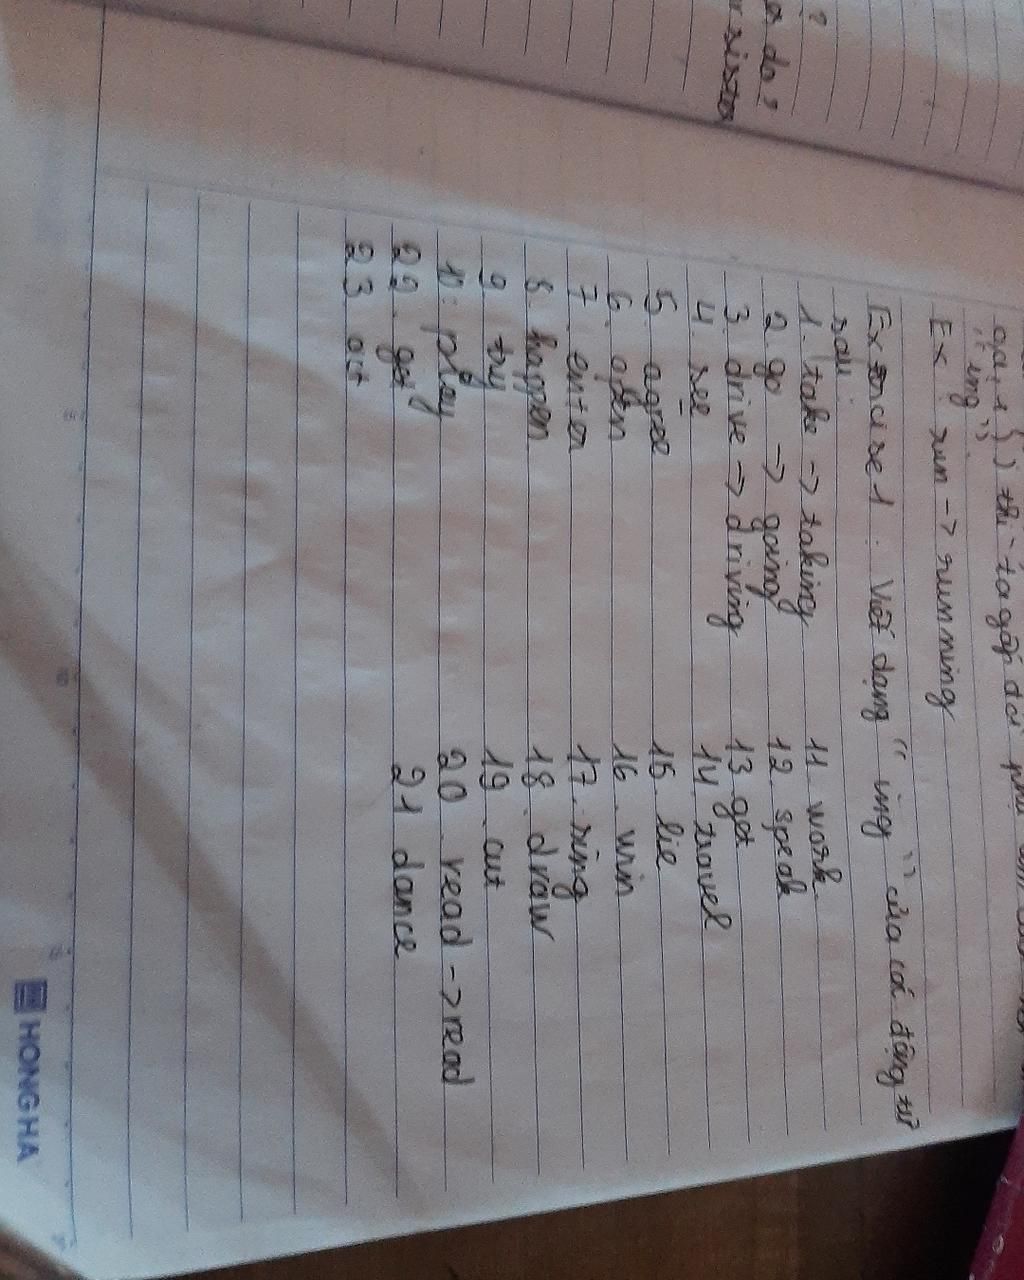 ? 
do?
sister
thì ta gấp đôi phụ âm
"ing"
Ex: run -> running
Exercise 1: Viết dạng "ing" của cá động từ
sau.
1. take -> taking
2. go -> going
3. drive -> driving
4. see
5. agree
6. open
7. enter
8. happen
9. try
10: play
22. get
23. eat
11. work
12. speak
13 get
14. travel
15. lie
16. win
17. ring
18. draw
19. cut
20. read -> read
21 dance
HONG HA